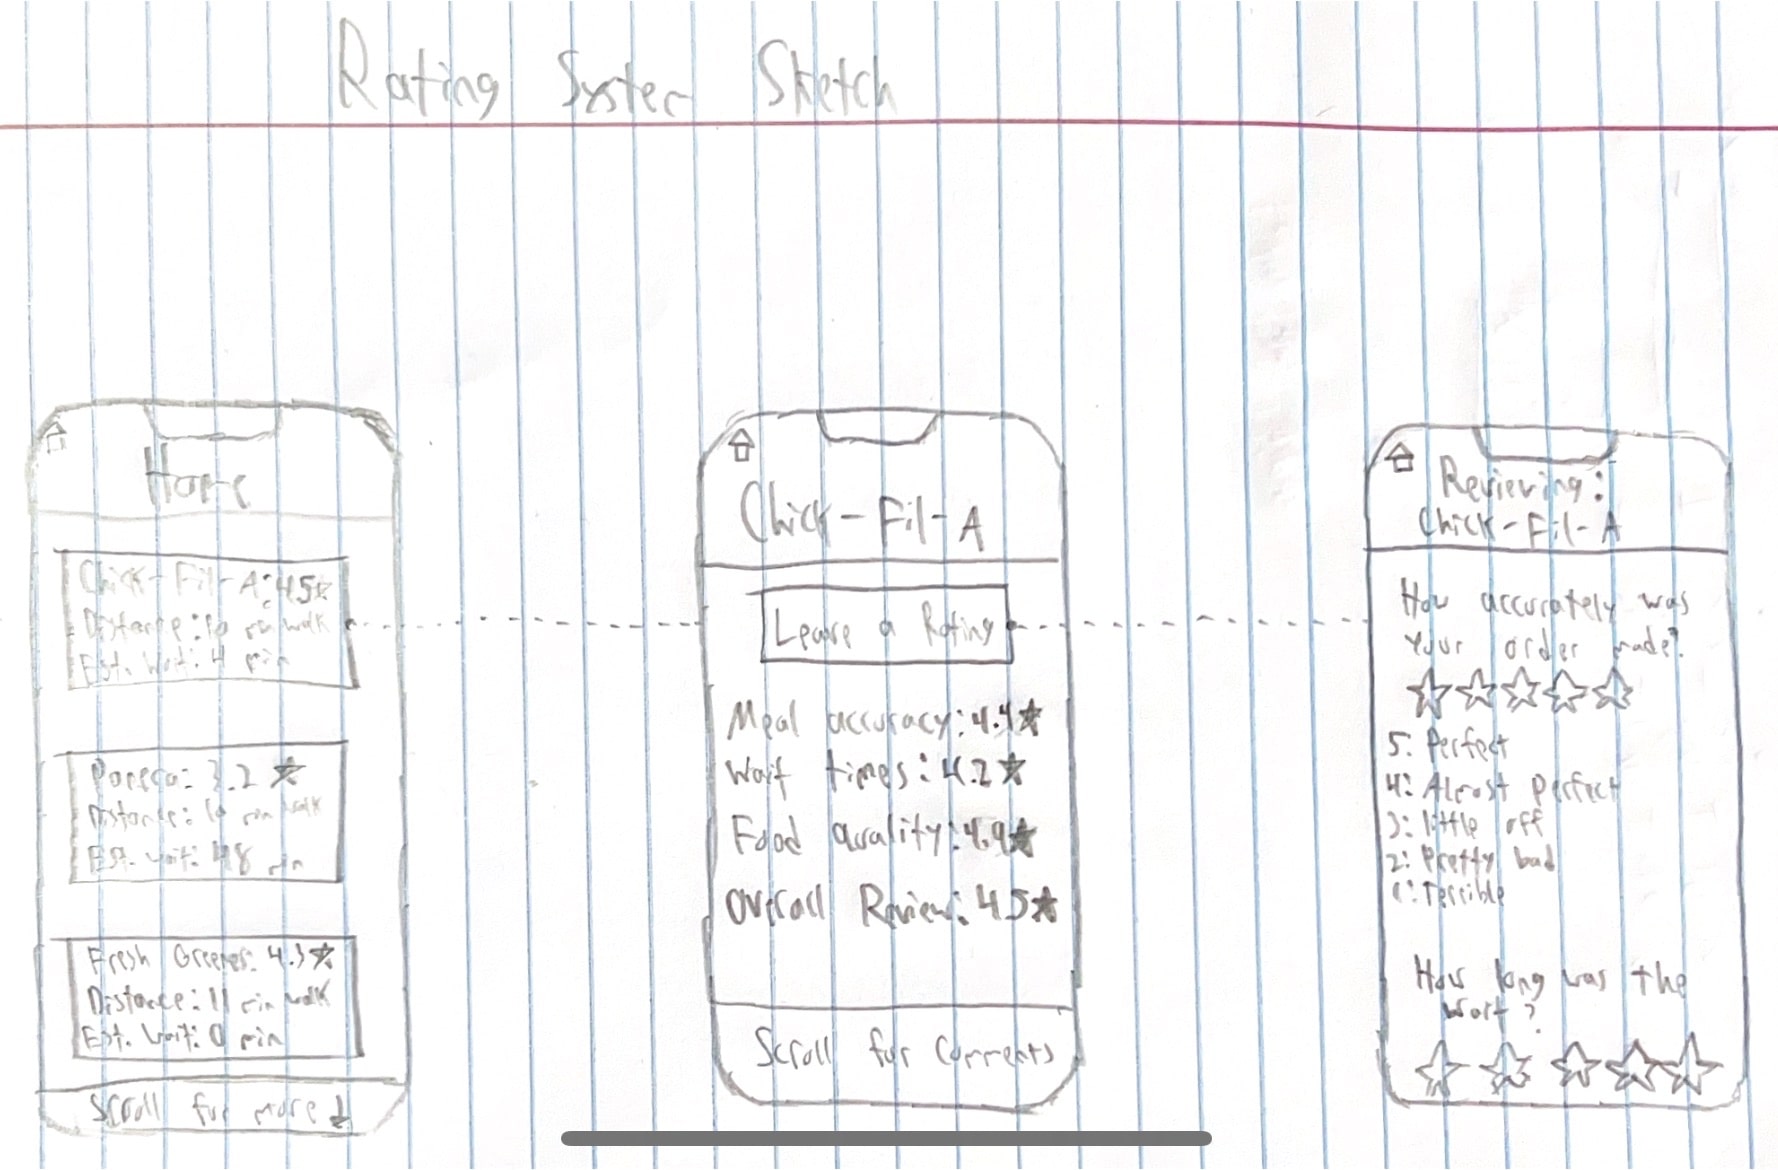 Rating System Sketch
Home
Chick-Fil-A: 4.5☆
Distance: 10 min walk
Est. Wait: 4 min
Panera: 3.2 ★
Distance: 10 min walk
Est. wait: 48 min
Fresh Greenes: 4.3★
Distance: 11 min walk
Est. Wait: 0 min
Scroll for more ↓
Chick-Fil-A
Leave a Rating
Meal accuracy: 4.4★
Wait times: 4.2★
Food quality: 4.9★
Overall Review: 4.5★
Scroll for Comments
Reviewing:
Chick-Fil-A
How accurately was
your order made?
☆☆☆☆☆
5: Perfect
4: Almost perfect
3: little off
2: Pretty bad
1: Terrible
How long was the
wait?
☆☆☆☆☆